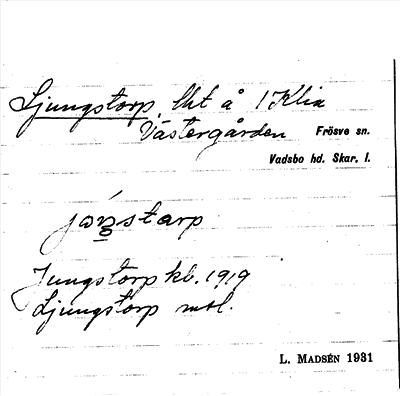 Ljungstorp, lht å 1 Klix
Västergården Frösve sn.
Vadsbo hd. Skar. l.
jóŋstarp
Jungstorp kb. 1919
Ljungstorp mtl.
L. MADSÉN 1931